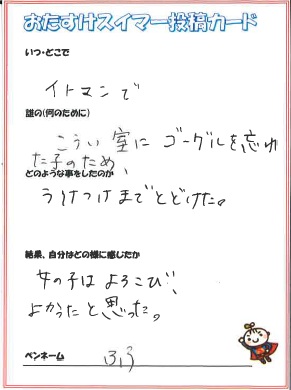 おたすけスイマー投稿カード
いつ・どこで
イトマンで
誰の(何のために)
こうい室にゴーグルを忘れ
た子のため、
どのような事をしたのか
うけつけまでとどけた。
結果、自分はどの様に感じたか
女の子はよろこび、
よかったと思った。
ペンネーム